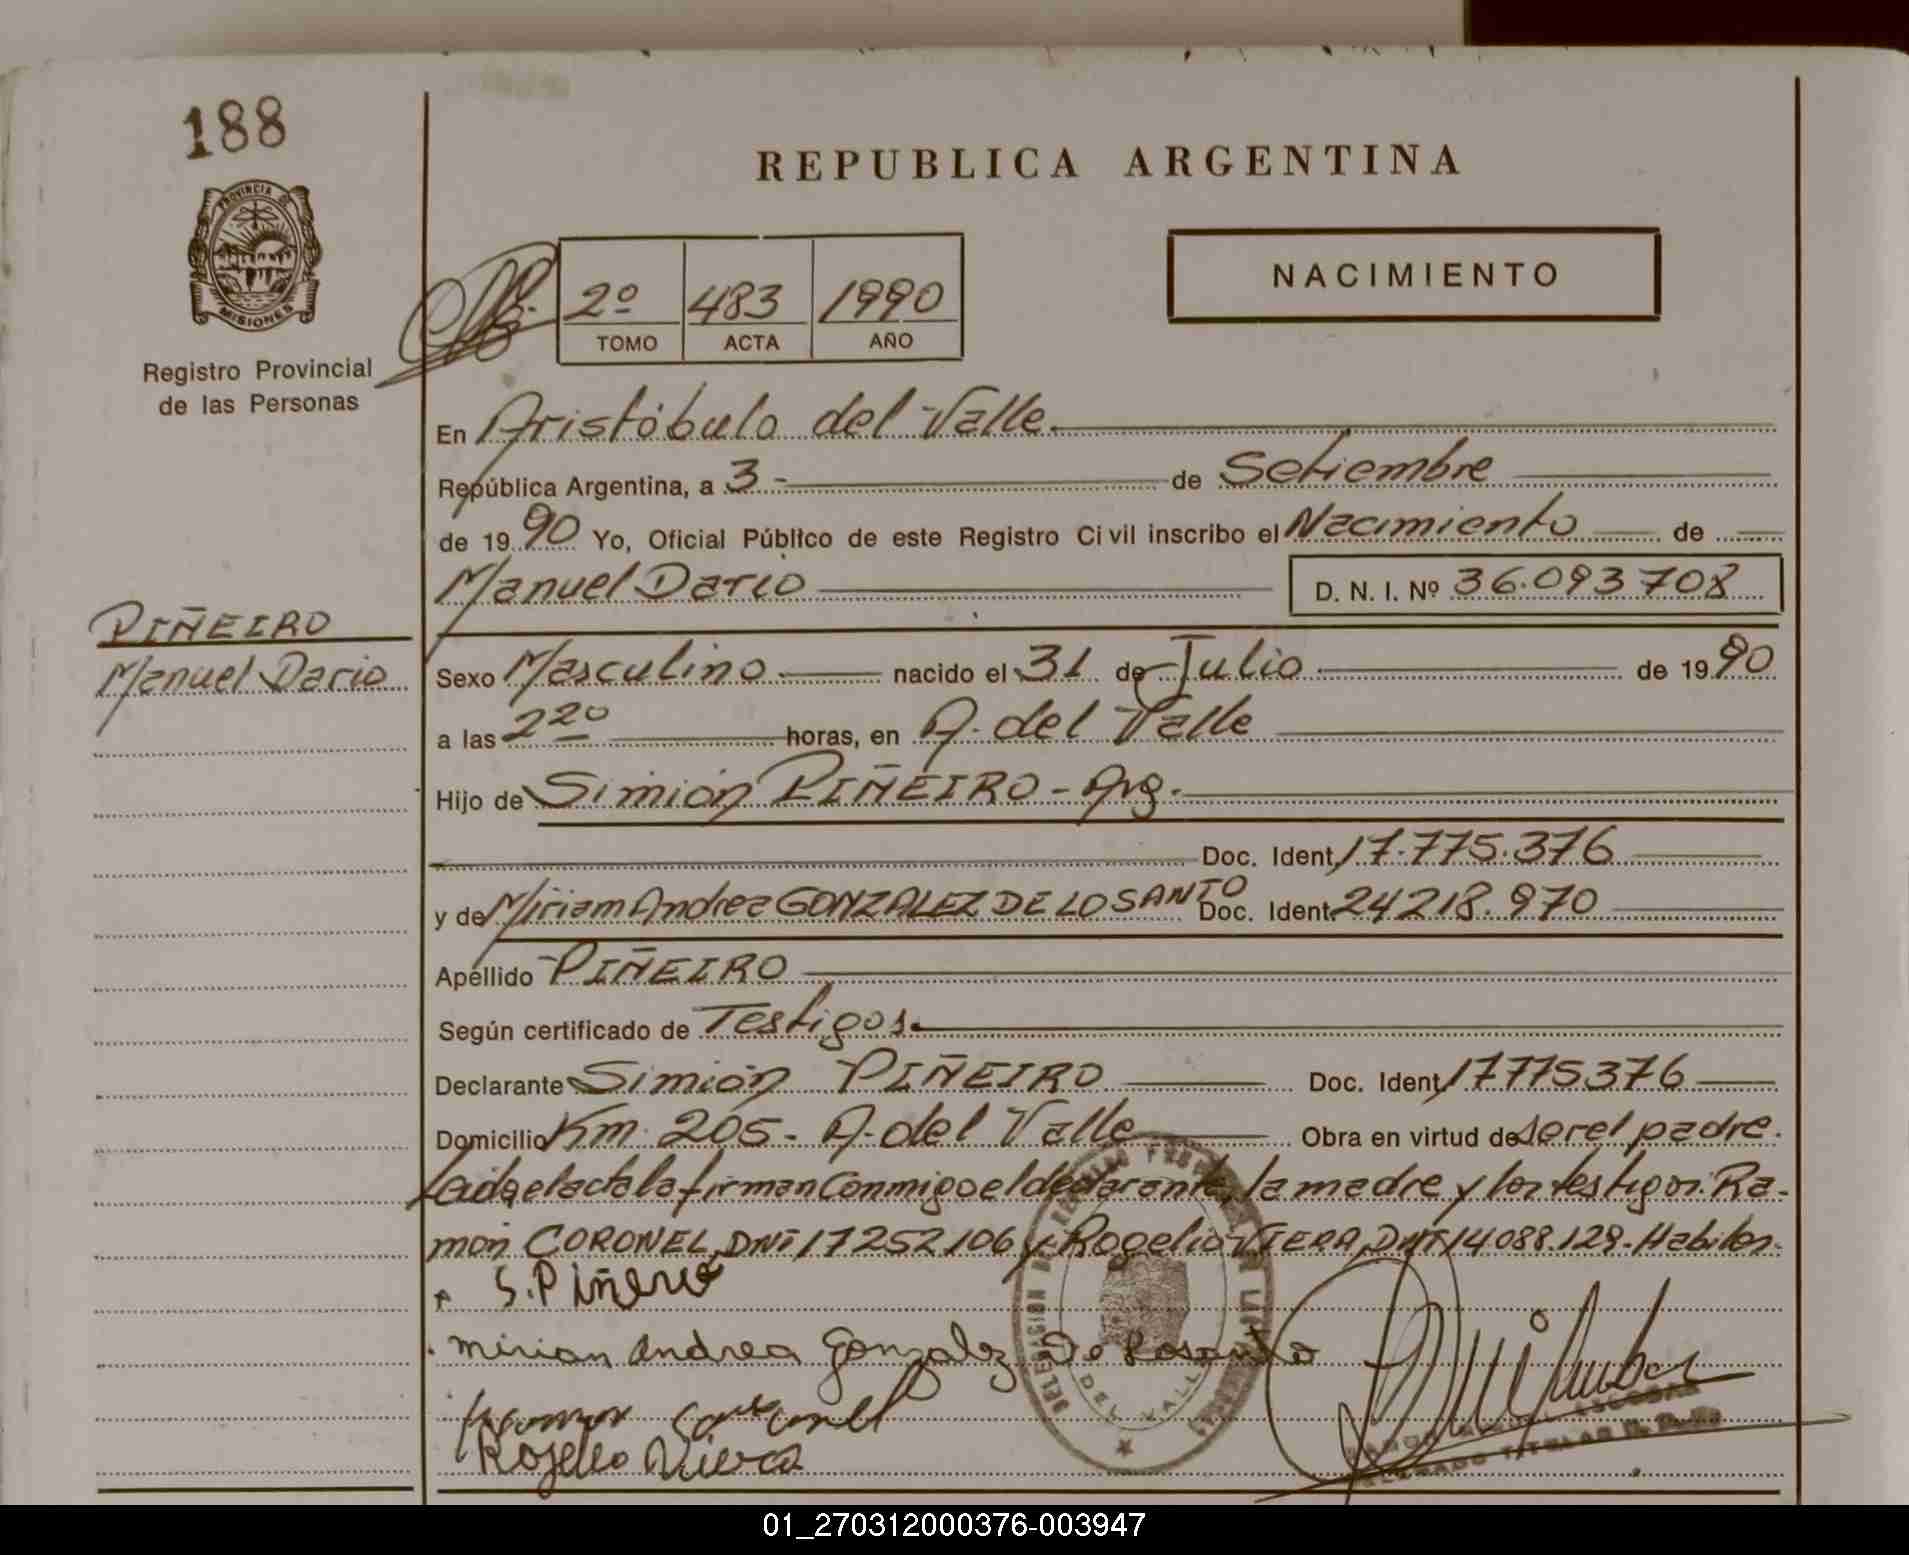 188
PROVINCIA DE
MISIONES
Registro Provincial
de las Personas
REPUBLICA ARGENTINA
2º 483 1990
TOMO ACTA AÑO
NACIMIENTO
En Aristóbulo del Valle.
República Argentina, a 3 - de Setiembre
de 19 90 Yo, Oficial Público de este Registro Civil inscribo el Nacimiento de
Manuel Dario D. N. I. Nº 36.093708
PIÑEIRO
Manuel Dario
Sexo Masculino nacido el 31 de Julio de 19 90
a las 2 20 horas, en A. del Valle
Hijo de Simión PIÑEIRO - Arg.
Doc. Ident. 17.775.376
y de Miriam Andrea GONZALEZ DE LOSANTO Doc. Ident. 24218.970
Apellido PIÑEIRO
Según certificado de Testigos.
Declarante Simión PIÑEIRO Doc. Ident. 17775376
Domicilio Km. 205 - A. del Valle Obra en virtud de ser el padre.
Leida el acta la firman conmigo el declarante, la madre y los testigos: Ra-
món CORONEL, DNI 17252106 y Rogelio VIERA, DNI 14088.129 - Habiles.
S. Piñeiro
mirian andrea gonzalez De Losanto
Rogelio Viera
DEL VALLE
TITULAR
01_270312000376-003947